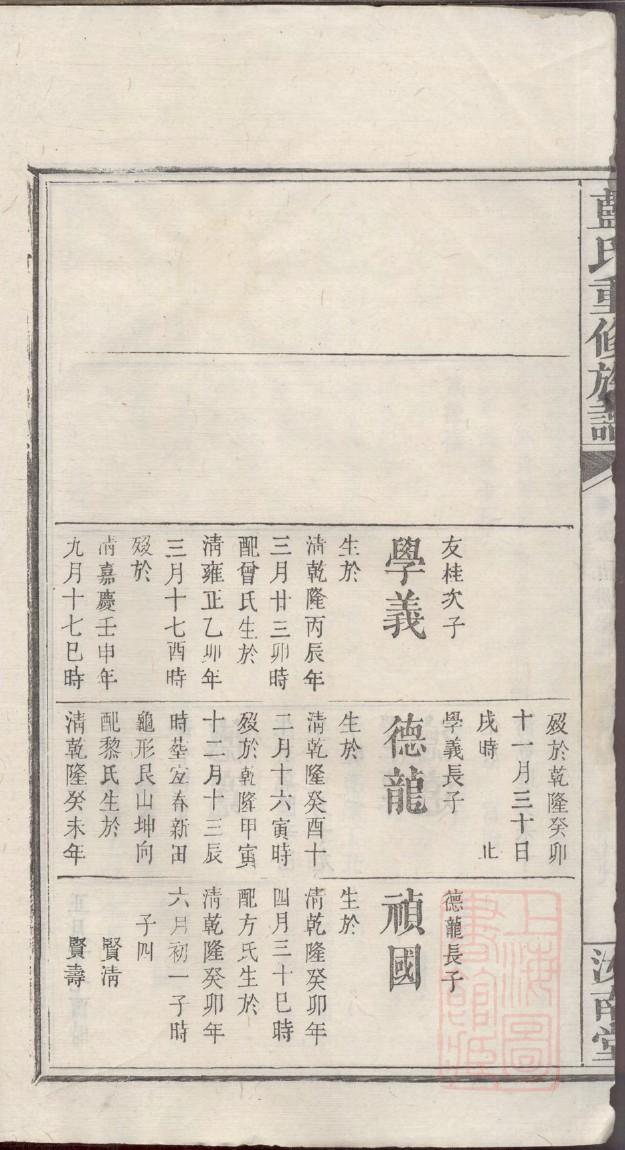 藍氏重修族譜
汝南堂
友桂次子
學義
生於
清乾隆丙辰年
三月廿三卯時
配曾氏生於
清雍正乙卯年
三月十七酉時
歿於
清嘉慶壬申年
九月十七巳時
歿於乾隆癸卯
十一月三十日
戌時 止
學義長子
德龍
生於
清乾隆癸酉十
二月十六寅時
歿於乾隆甲寅
十二月十三辰
時塟宜春新田
龜形艮山坤向
配黎氏生於
清乾隆癸未年
德龍長子
禎國
生於
清乾隆癸卯年
四月三十巳時
配方氏生於
清乾隆癸卯年
六月初一子時
子四
賢清
賢壽
上海圖
書館藏